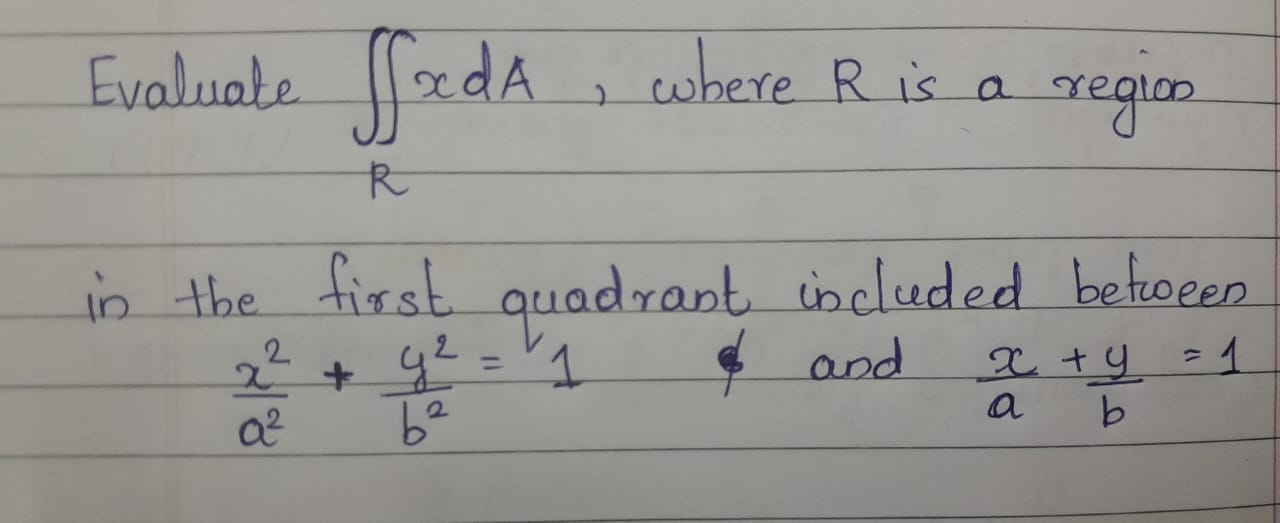 Evaluate ∬ x dA , where R is a region
R
in the first quadrant included between
x²/a² + y²/b² = 1 and x/a + y/b = 1